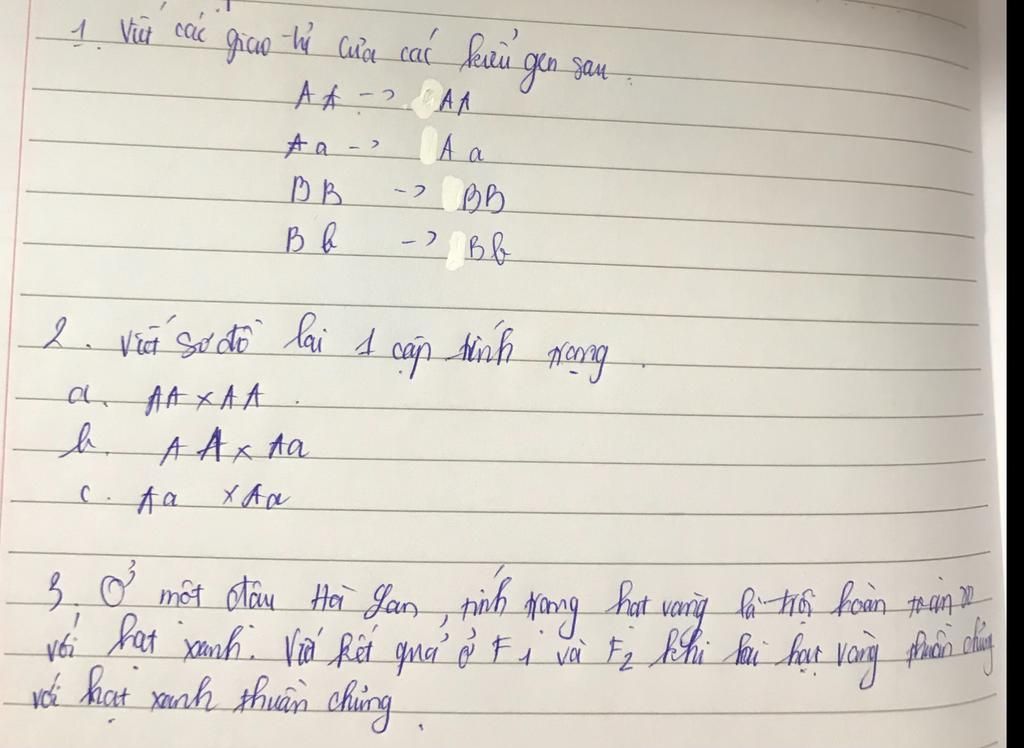 1. Viết các giao tử của các kiểu gen sau.
AA -> AA
Aa -> A a
BB -> BB
Bb -> Bb
2. Viết sơ đồ lai 1 cặp tính trạng.
a. AA x AA.
b. AA x Aa
c. Aa x Aa
3. Ở một đâu Hà Lan, tính trạng hạt vàng là trội hoàn toàn so
với hạt xanh. Viết kết quả ở F1 và F2 khi lai hạt vàng thuần chủng
với hạt xanh thuần chủng.